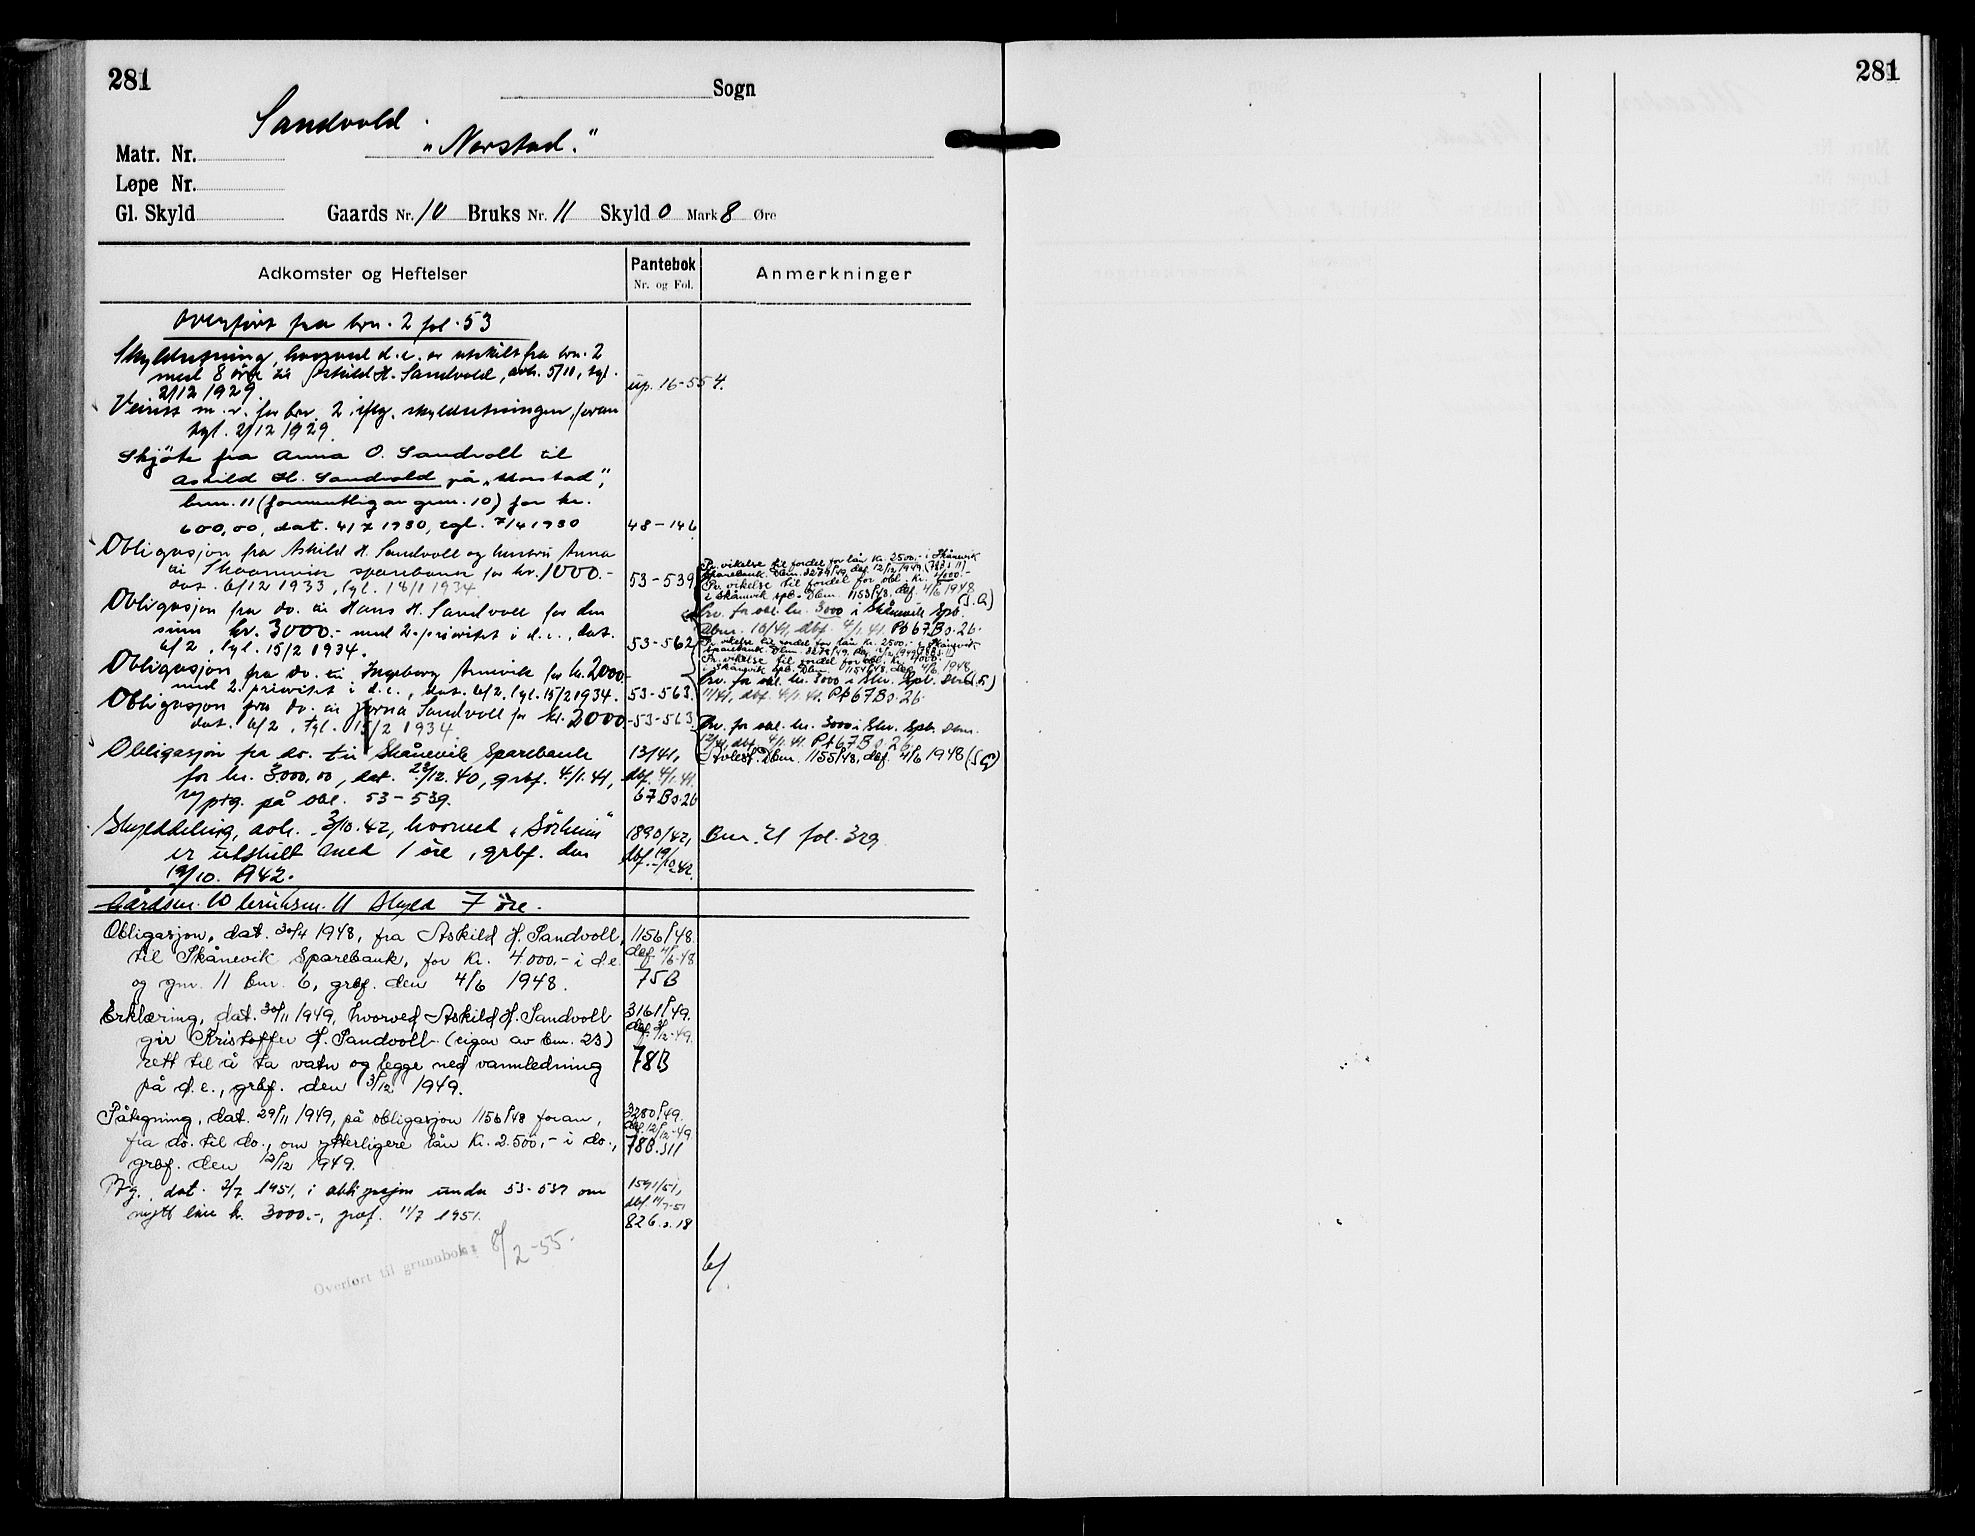 281
Sogn
Sandvold
Matr. Nr. "Norstad."
Løpe Nr.
Gl. Skyld Gaards Nr. 10 Bruks Nr. 11 Skyld 0 Mark 8 Øre
Adkomster og Heftelser
Pantebok
Nr. og Fol.
Anmerkninger
Overført fra brn. 2 fol. 53
Skyldsetning, hvorved d.e. er utskilt fra brn. 2
med 8 øre til Askild H. Sandvold, avh. 5/11, tgl.
2/12 1929. up. 16-554.
Veirett m. v. for brn. 2 iflg. skyldsetningen foran
tgl. 2/12 1929.
Skjøte fra Anna O. Sandvoll til
Askild H. Sandvold på "Norstad",
brn. 11 (formentlig av gnr. 10) for kr.
600,00, dat. 4/7 1930, tgl. 7/4 1930 48-146
Obligasjon fra Askild H. Sandvoll og hustru Anna
til Skaanevik sparebank for kr. 1000.- 53-539
dat. 6/12 1933, tgl. 18/1 1934.
Pr. vikelse til fordel for lån kr. 2500,- i Skånevik
Sparebank. Dbnr. 3279/49, def. 12/12 1949. (78B s 11)
Pr. vikelse til fordel for obl. kr. 4000.-
i Skånevik spb. Dbnr. 1153/48, def. 4/6 1948
Prv. for obl. kr. 3000 i Skånevik Spb.
Dbnr. 10/41, dbf. 4/1. 41. Pb 67 B s. 26.
Obligasjon fra do. til Hans H. Sandvoll for den
sum kr. 3000.- med 2. prioritet i d.e., dat.
6/2, tgl. 15/2 1934. 53-562
Pr. vikelse til fordel for lån kr. 2500,- i Skånevik
Sparebank. Dbnr. 3278/49, def. 12/12 1949 (78B s 11)
Pr. vikelse til fordel for obl. kr. 4000.-
i Skånevik spb. Dbnr. 1154/48, def. 4/6 1948
Prv. for obl. kr. 3000 i Skv. Spb. Dbnr.
11/41, dbf. 4/1. 41. Pb 67 B s. 26.
Obligasjon fra do. til Ingeborg Annvik for kr. 2000.-
med 2. prioritet i d.e., dat. 6/2, tgl. 15/2 1934. 53-563.
Obligasjon fra do. til Jorna Sandvoll for kr. 2000.- 53-563
dat. 6/2, tgl. 15/2 1934.
Prv. for obl. kr. 3000 i Skv. Spb. Dbnr.
12/41, dbf. 4/1. 41. Pb 67 B s. 26.
Obligasjon fra do. til Skånevik Sparebank 13/41,
for kr. 3000,00, dat. 28/12. 40, grbf. 4/1. 41, dbf. 4/1. 41.
m/ ptg. på obl. 53-539. 67 B s. 26
Avlest. Dbnr. 1155/48, def. 4/6 1948
Skylddeling, avh. 3/10. 42, hvorved "Sørheim" 1890/42,
er utskilt med 1 øre, grbf. den dbf. 19/10 42.
19/10. 1942.
Bnr. 21 fol. 329.
Gårdsnr. 10 bruksnr. 11 Skyld 7 øre.
Obligasjon, dat. 30/4 1948, fra Askild H. Sandvoll, 1156/48.
til Skånevik Sparebank, for kr. 4000.- i d.e. def. 4/6-48
og gnr. 11 bnr. 6, grbf. den 4/6 1948. 75B
Erklæring, dat. 30/11 1949, hvorved Askild H. Sandvoll 3161/49.
gir Kristoffer H. Sandvoll (eigar av bnr. 23) def. 3/12-49.
rett til å ta vatn og legge ned vannledning 78B
på d.e., grbf. den 3/12 1949.
Påtegning, dat. 29/11 1949, på obligasjon 1156/48 foran, 3280/49.
fra do. til do., om ytterligere lån kr. 2.500,- i do., def. 12/12-49
grbf. den 12/12 1949. 78B. s11
Ptg., dat. 2/7 1951, i obligasjon under 53-539 om 1591/51,
nytt lån kr. 3000.-, grbf. 11/7 1951. dbf. 11/7-51
82 B. s. 18
Overført til grunnbok: 8/2-55.
281